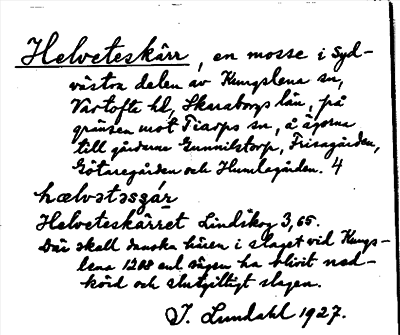 Helveteskärr, en mosse i syd-
västra delen av Kungslena sn,
Vartofta hd, Skaraborgs län, på
gränsen mot Tiarps sn, å ägorna
till gårdarna Gunnilstorp, Frisagården,
Götaregården och Humlagården. 4
hælvətəsgár
Helveteskärret Lindskog 3, 65.
Där skall danska hären i slaget vid Kungs-
lena 1208 enl. sägen ha blivit ned-
körd och slutgiltigt slagen.
J. Lundahl 1927.